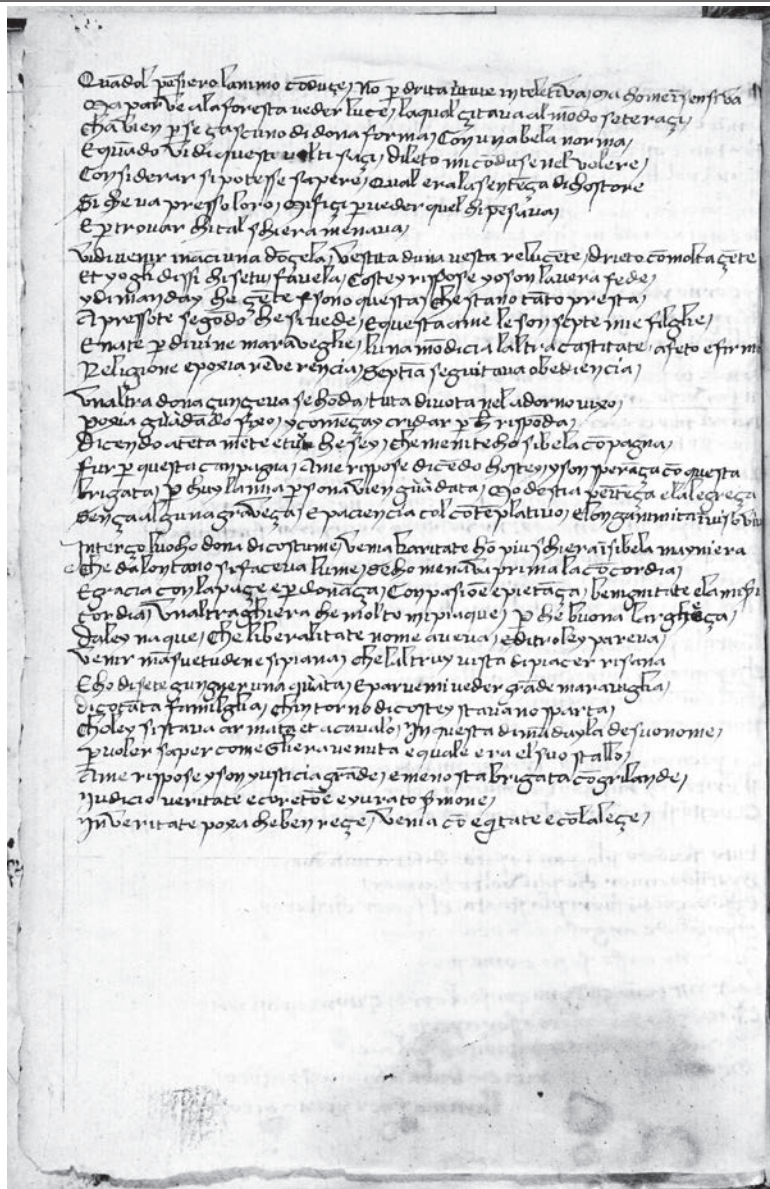 Quādol pēsiero lanimo cōduçe / No p drita vtute inteletiva / Ma home isensiva
Ma parve ala foresta veder luce / laqual gitava al modo soteraçi /
Cha vien p se çascuno di dona forma / Con una bela norma /
E quādo vidi questi volti saçi / dileto mi cōduse nel volere /
Considerar si potesse sapere / Qual era la sentēça di hostore
Si che va presso loro / Mi fiçi p veder quel chi pesava /
E p trovar chi tal schiera menava /
Vidi venir inaçi una dōçela / Vestita duna vesta relucēte / drieto cō molta çēte
Et yo gli dissi chi setu favela / Costey rispose yo son la vera fede /
ydimanday che çēte sono questa / che stano tāto presta /
Apressote segōdo che si vede / E questa a me le son septe mie filglie /
E nate p divine maraveglie / luna mōdicia laltra castitate / afeto e firm
Religione e poxia reverencia / Septia seguitava obediencia /
Vnaltra dona gungeva se honda / tuta divota nel adorno vixo /
Poxia guādādo fixo / ycomēçay cridar p ch rispōda /
Dicendo atēta mēte e tu che sey / che meni techo si bela cōpagna /
fur p questa campagia / A me rispose dicēdo hostey / yson sperāça cō questa
brigata / p chuy lanna psona vien guādata / Modestia penitēça e lalegreça
Sença alguna graveça / E paciencia col cōteplativo / E longanimita
In terço luoho dona di costume / Venia karitate hō piu schiera i si bela mayniera
Che da lontano si faceva lume / Secho menava prima la cōcordia /
E gracia con la paçe e pdonāça / Conpasiōe e pietāça / benignitate e la mi
cordia / Vnaltra ghiera che molto mi piaque / p che buona largheça /
Da ley naque / Che liberalitate nome aveva / E ditro ley pareva /
Venir māsuetudene si piana / che laltruy vista di piacer risana
E cho di sete gungner una quata / E parvemi veder grāde maraviglia /
di cotāta familglia / Chintorno di costey stavano sparta /
Choley si stava armata et a cavalo / In questa dimāday la de suo nome /
p voler saper come ghiera venuta e quale era el suo stallo /
A me rispose yson yusticia grāde / e meno sta brigata cō grilande /
Iudicio veritate e coretiōe e xurato smone /
In veritate poxa che ben reçe / Venia cō egtate e cō la leçe /